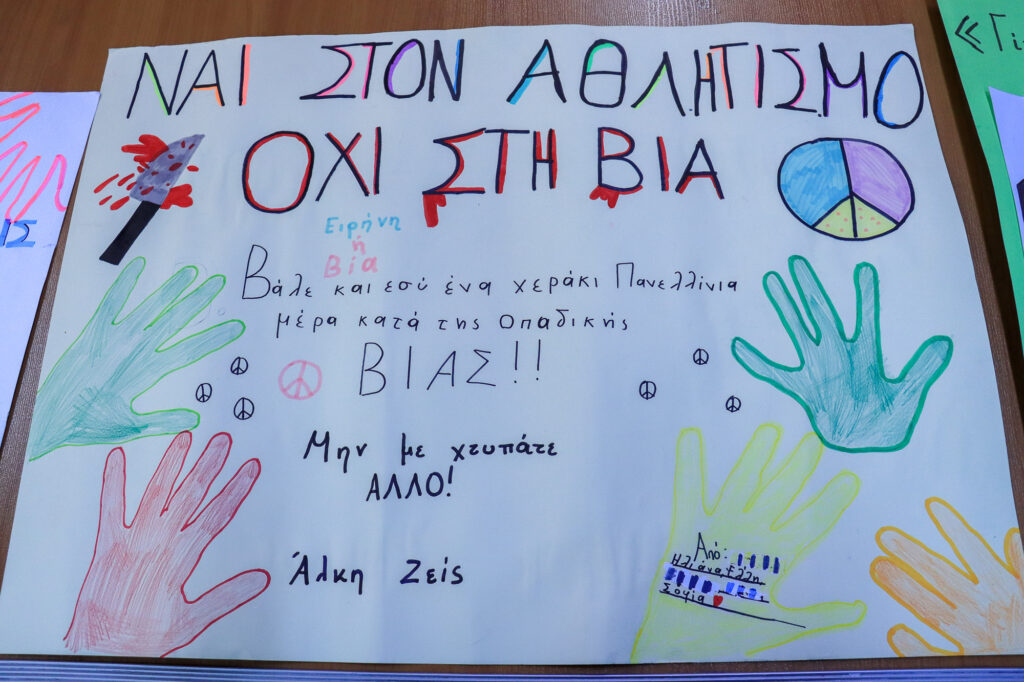 ΝΑΙ ΣΤΟΝ ΑΘΛΗΤΙΣΜΟ
ΟΧΙ ΣΤΗ ΒΙΑ
Ειρήνη
ή
Βία
Βάλε και εσύ ένα χεράκι Πανελλίνια
μέρα κατά της οπαδικής
ΒΙΑΣ!!
Μην με χτυπάτε
ΑΛΛΟ!
Άλκη Ζείς
Από:
Ηλιάνα, Έλλη
Σοφία
ΙΣ
«Γι